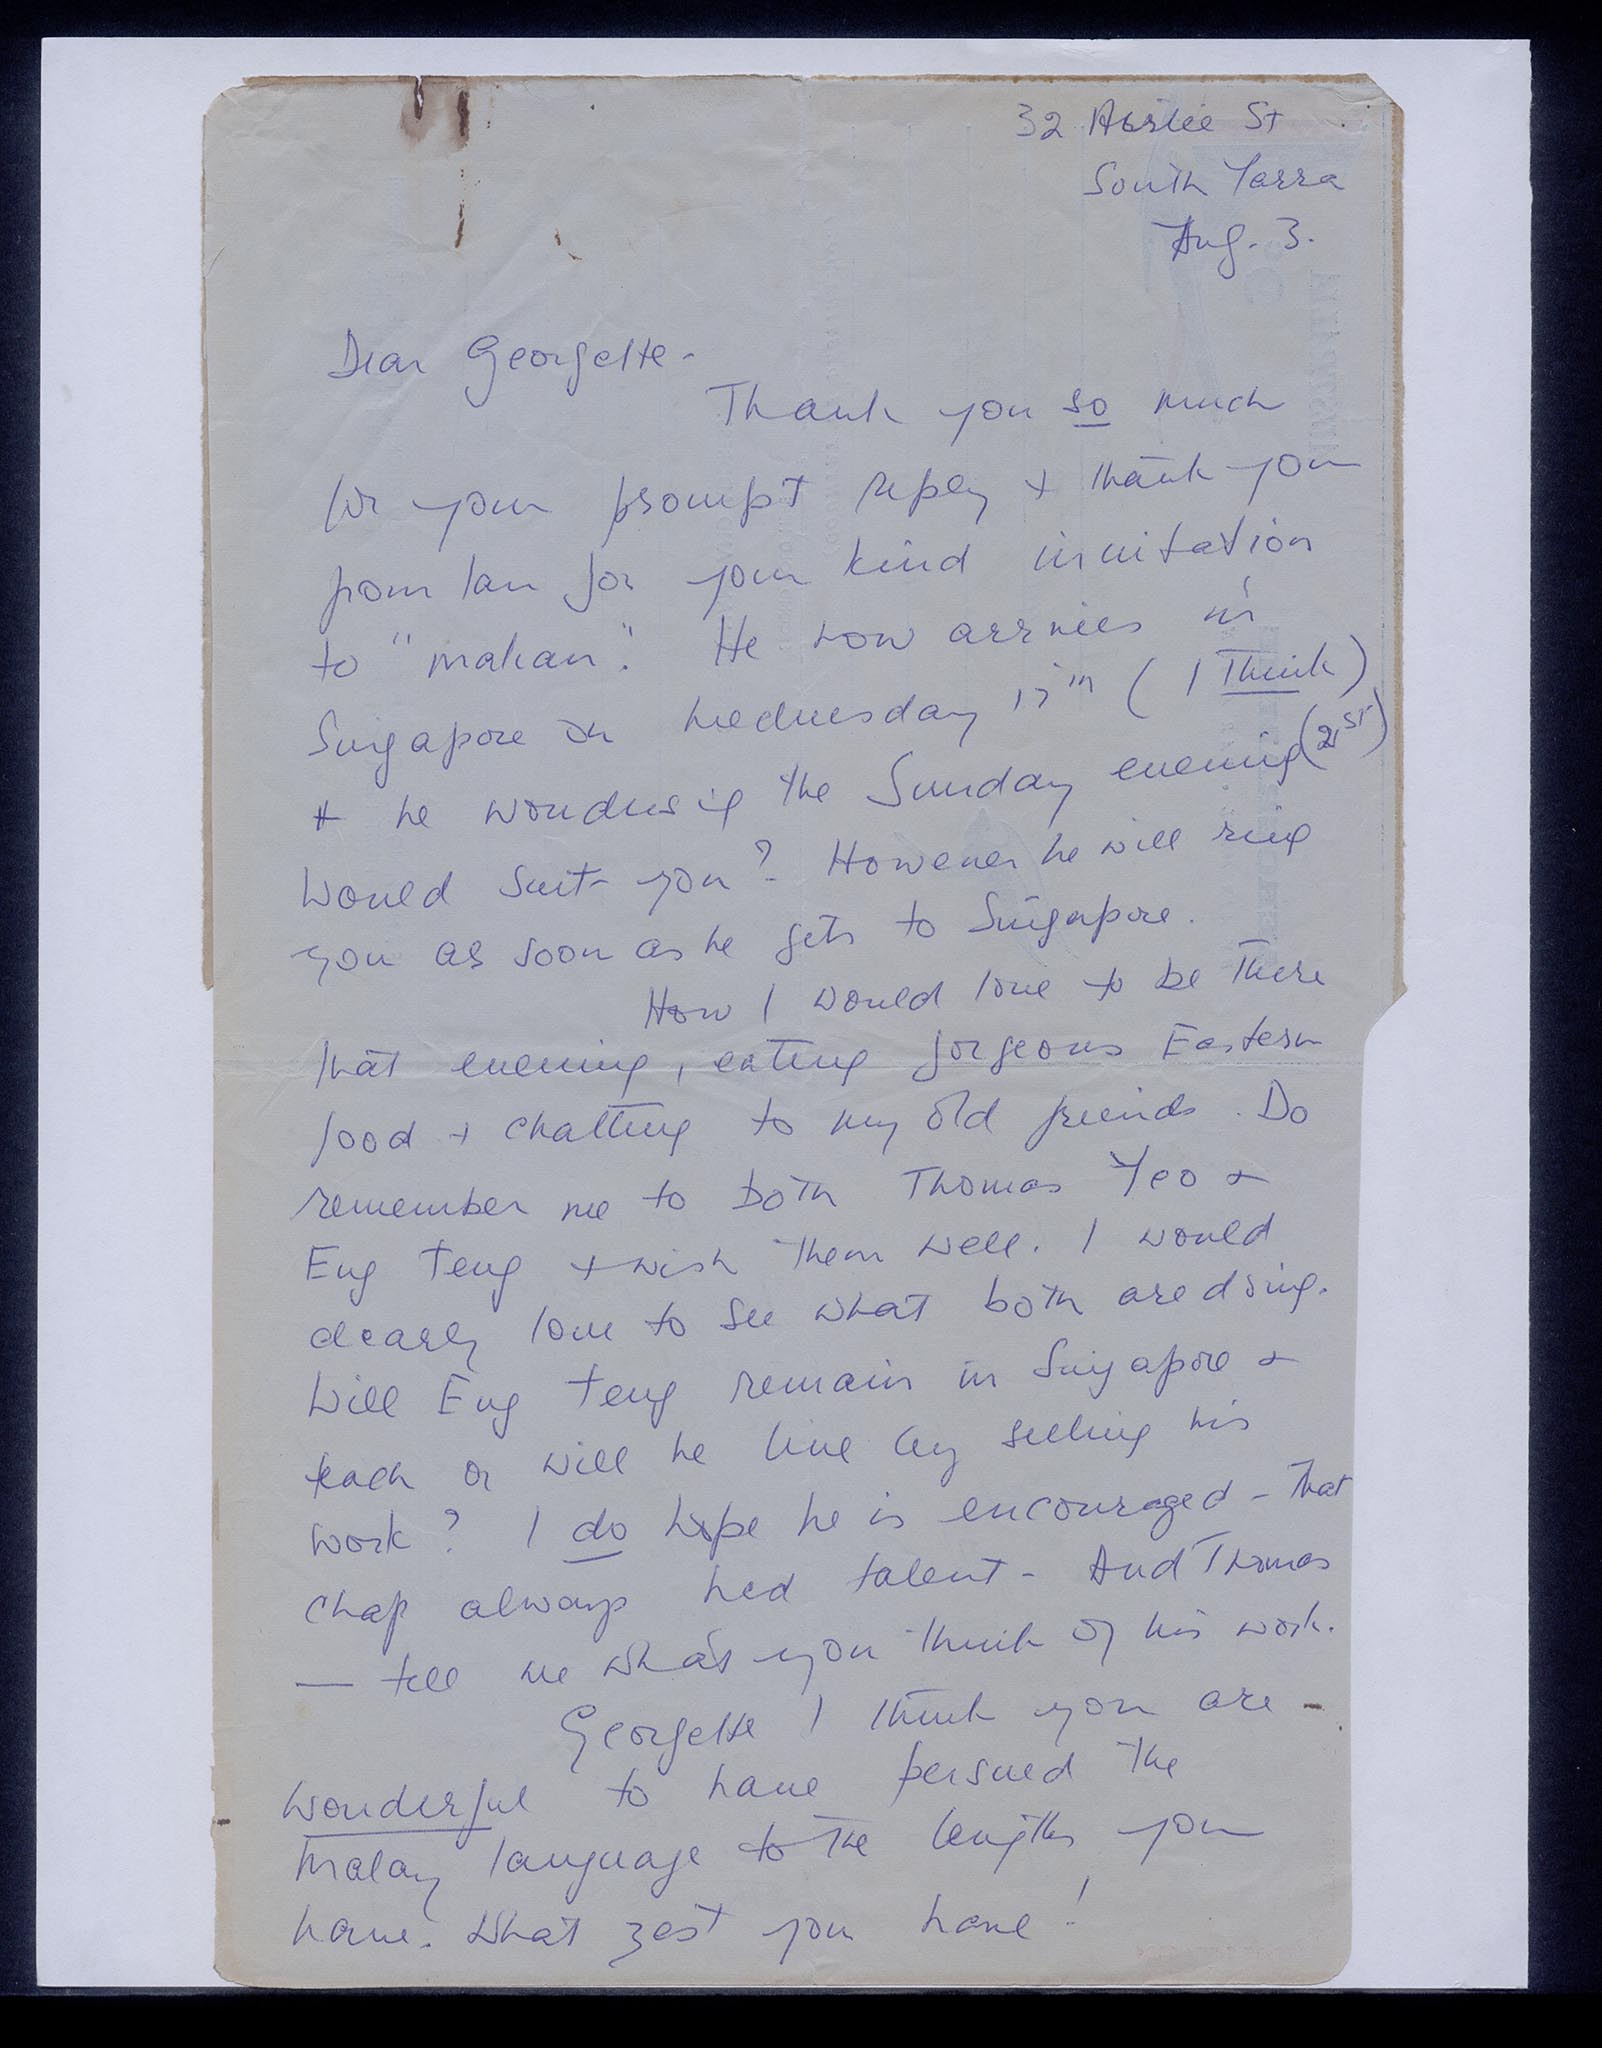 32 Airlie St
South Yarra
Aug. 3.
Dear Georgette -
Thank you so much
for your prompt reply + thank you
from Ian for your kind invitation
to "makan". He now arrives in
Singapore on Wednesday 17th (I Think)
+ he wonders if the Sunday evening (21st)
would suit you? However he will ring
you as soon as he gets to Singapore.
How I would love to be there
that evening, eating gorgeous Eastern
food + chatting to my old friends. Do
remember me to both Thomas Yeo +
Eng Teng + wish them well. I would
dearly love to see what both are doing.
Will Eng Teng remain in Singapore +
teach or will he live by selling his
work? I do hope he is encouraged - that
chap always had talent - And Thomas
— tell me what you think of his work.
Georgette I think you are
wonderful to have persued the
Malay language to the lengths you
have. What zest you have!